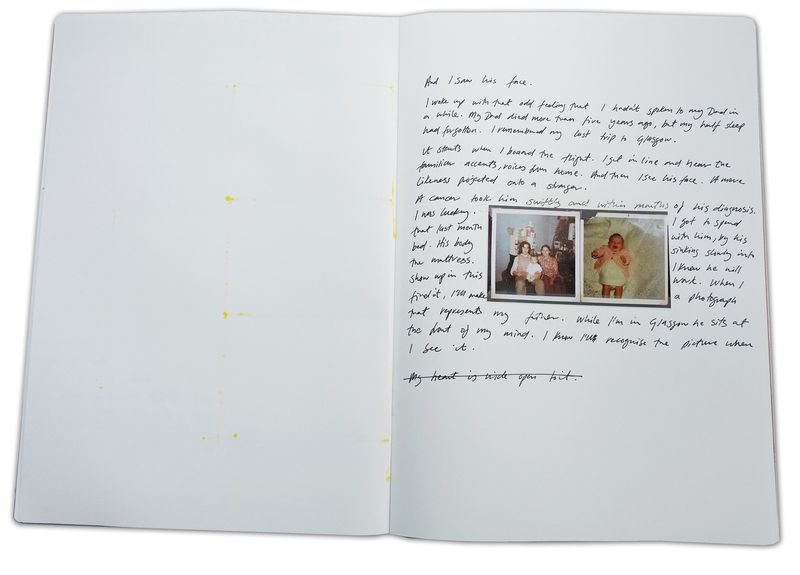 And I saw his face.
I wake up with that odd feeling that I hadn't spoken to my Dad in
a while. My Dad died more than five years ago, but my half sleep
had forgotten. I remembered my last trip to Glasgow.
It starts when I board the flight. I get in line and hear the
familiar accents, voices from home. And then I see his face. A mere
likeness projected onto a stranger.
A cancer took him swiftly and within months of his diagnosis.
I was lucky. I got to spend
that last month with him, by his
bed. His body sinking slowly into
the mattress. I know he will
show up in this work. When I
find it, I'll make a photograph
that represents my father. While I'm in Glasgow he sits at
the front of my mind. I know I'll recognise the picture when
I see it.
My heart is wide open